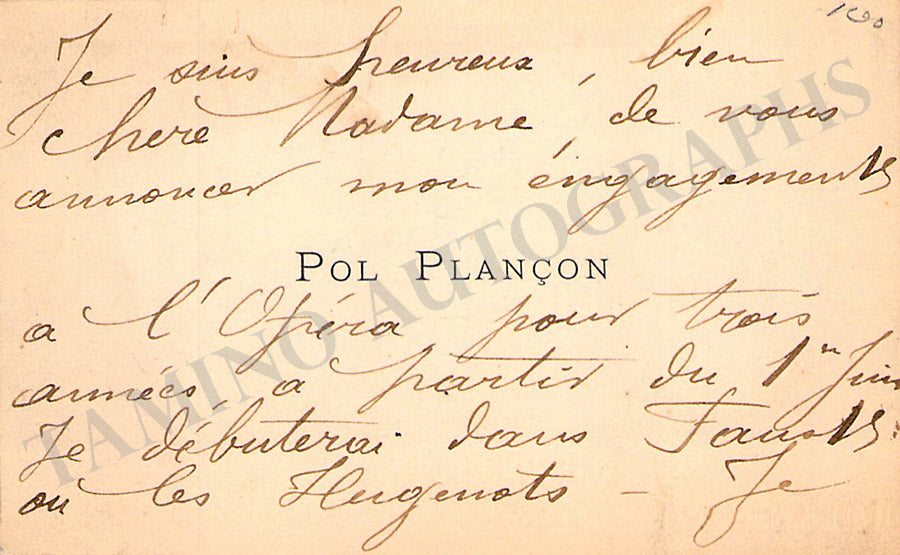 Je suis heureux, bien
chère Madame, de vous
annoncer mon éngagement
POL PLANÇON
a l'Opéra pour trois
années, a partir du 1er Juin
Je débuterai dans Faust
ou les Hugenots — Je
TAMINO AUTOGRAPHS